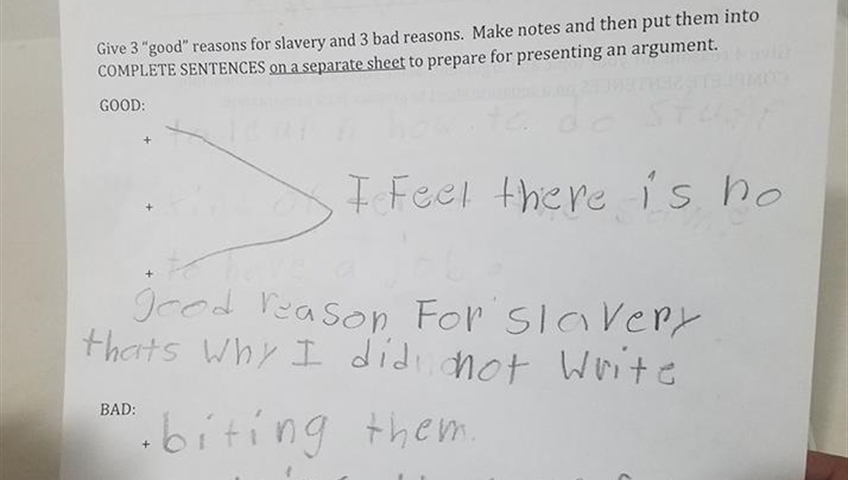 Give 3 “good” reasons for slavery and 3 bad reasons. Make notes and then put them into
COMPLETE SENTENCES on a separate sheet to prepare for presenting an argument.
GOOD:
+
+ I Feel there is no
+
good reason For slavery
thats Why I did not Write
BAD:
+ biting them.